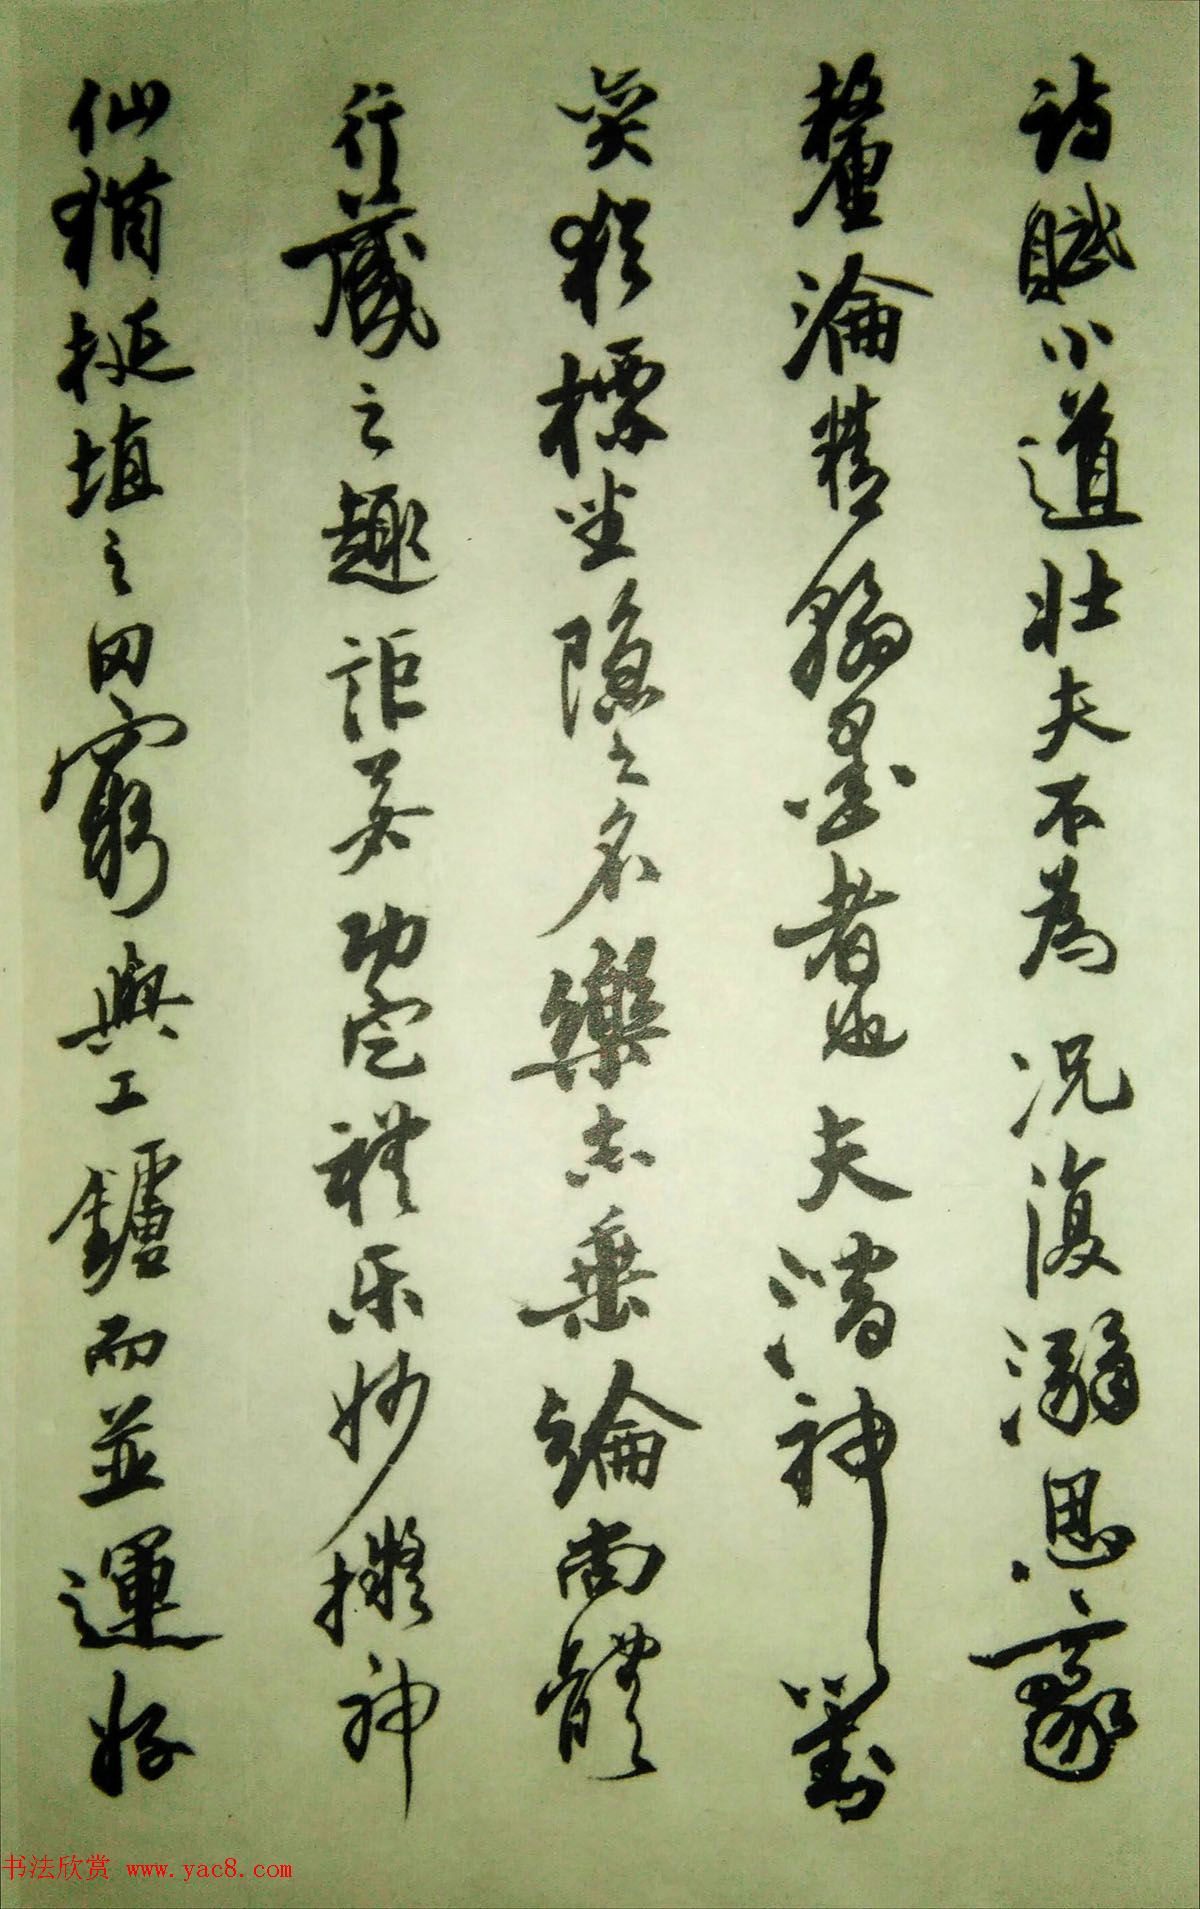 诗賦小道壮夫不為况復溺思豪
釐淪精翰墨者也夫潜神對
奕猶標坐隐之名樂志垂綸尚體
行藏之趣詎若功定禮乐妙擬神
仙猶埏埴之罔窮與工鑪而並運好
书法欣赏 www.yac8.com